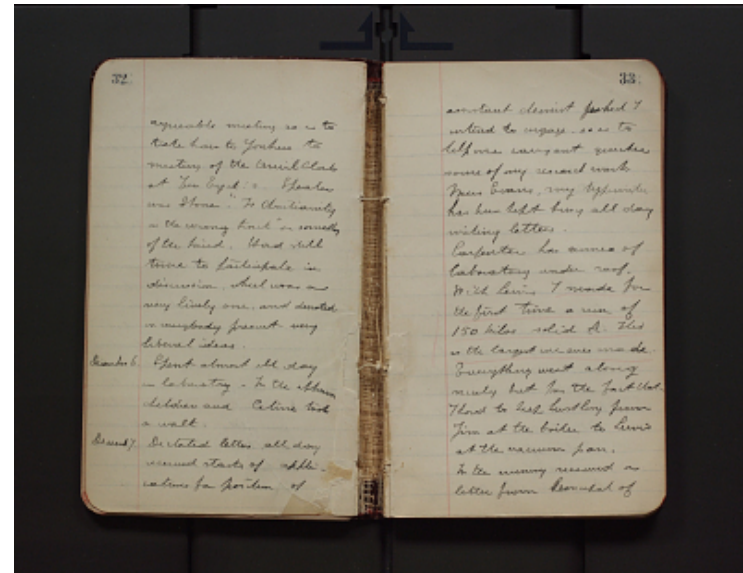 32
agreeable meeting so as to
take him to Yonkers the
meeting of the Comical Clock
at Ten Eyck's. Speaker
was Stone "Is Christianity
on the wrong track" or something
of the kind. Had still
time to participate in
discussion, which was a
very lively one, and denoted
in everybody present very
liberal ideas.
December 6. Spent almost all day
in laboratory - In the afternoon
children and Celine took
a walk.
December 7. Dictated letters all day
received stacks of appli-
cations for position of
33
assistant chemist which I
intend to engage so as to
help me carry out quicker
some of my research work
Miss Evans, my typewriter
has been kept busy all day
writing letters.
Carpenter has annex of
laboratory under roof.
With Lewis I made for
the first time a run of
150 kilos solid A. This
is the largest we ever made.
Everything went along
nicely but for the fact that
I had to keep hustling from
Jim at the boiler to Lewis
at the vacuum pan.
In the evening received a
letter from of